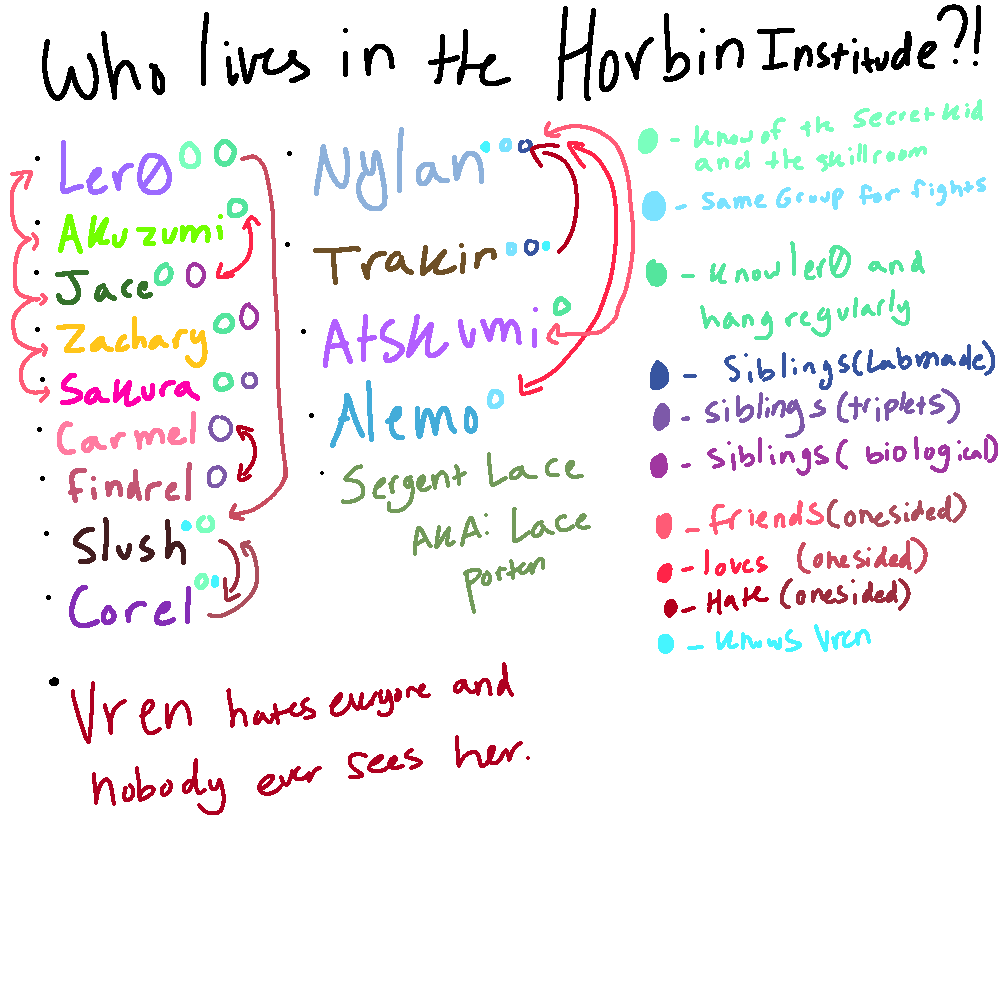 Who lives in the Horbin Institude?!
Ler0
Akuzumi
Jace
Zachary
Sakura
Carmel
findrel
Slush
Corel
Vren hates everyone and
nobody ever sees her.
Nylan
Trakin
Atskumi
Alemo
Sergent Lace
AKA: Lace
porten
- Know of the secret kid
and the skillroom
- Same Group for fights
- Know ler0 and
hang regularly
- Siblings (Labmade)
- siblings (triplets)
- Siblings (biological)
- friends (onesided)
- loves (onesided)
- Hate (onesided)
- knows Vren